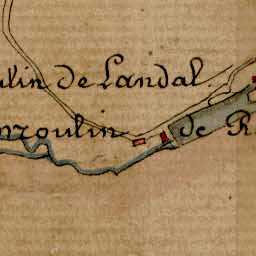 ulin de Landal.
moulin de R